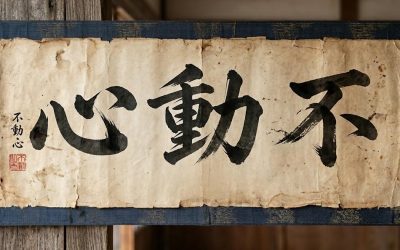 不動心
不動心